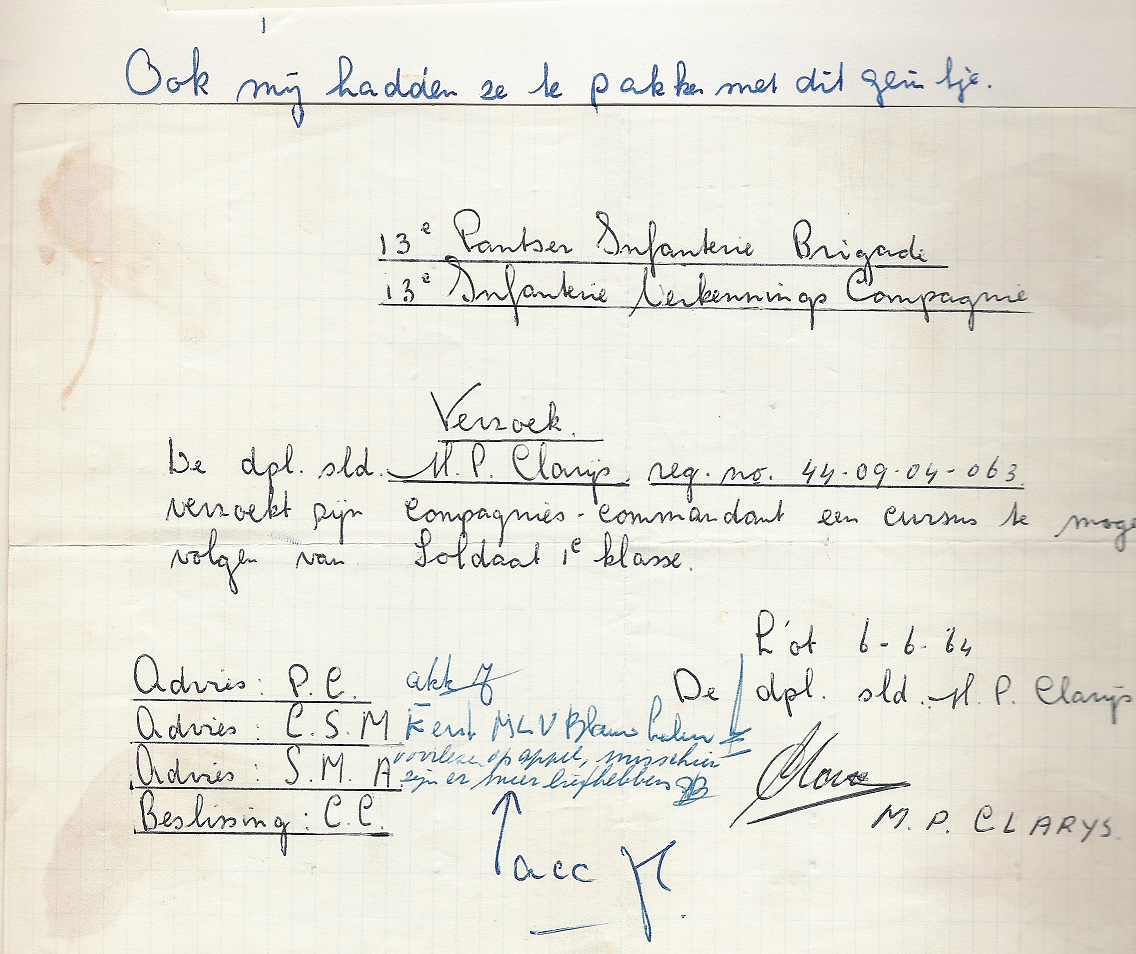 Ook mij hadden ze te pakken met dit geintje.
13e Pantser Infanterie Brigade
13e Infanterie Verkennings Compagnie
Verzoek.
De dpl. sld. M. P. Clarijs, reg. no. 44-09-04-063.
verzoekt zijn compagnies-commandant een cursus te moge
volgen van Soldaat 1e klasse.
L'ot 6-6-64
De dpl. sld. M. P. Clarijs
Advies: P.C. akk
Advies: C.S.M Eerst MLV
Advies: S.M.A voorlezen op appel, misschien
zijn er meer liefhebbers
Beslissing: C.C.
acc
M.P. CLARYS.